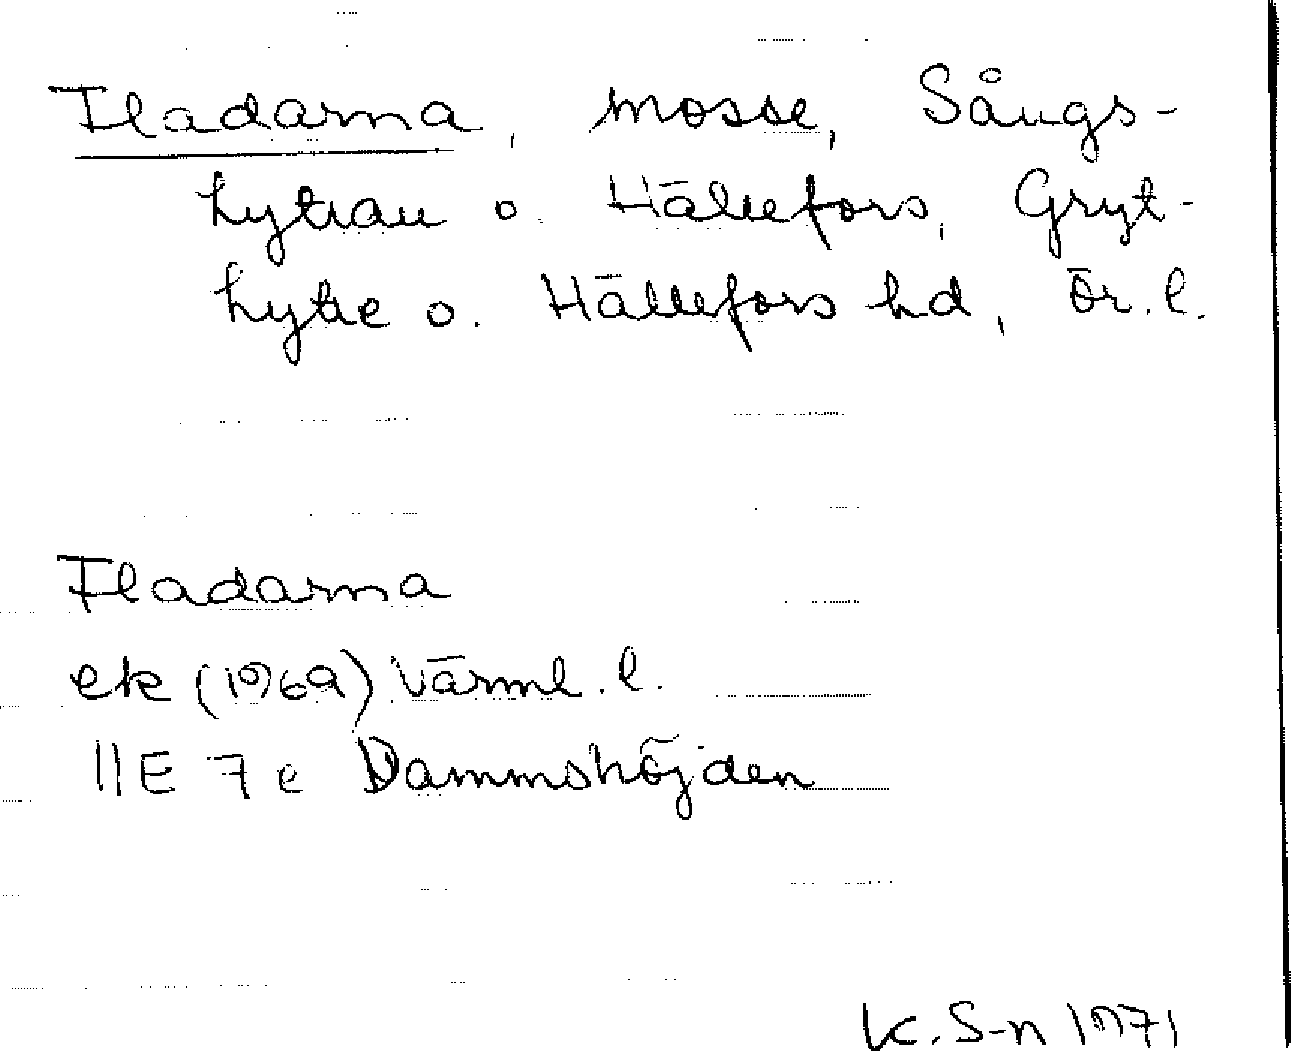 Fladarna, mosse, Sångs-
hyttan o. Hällefors, Gryt-
hytte o. Hällefors hd, Ör. l.
Fladarna
ek (1969) Värml. l.
11E 7e Dammshöjden
K. S-n 1971